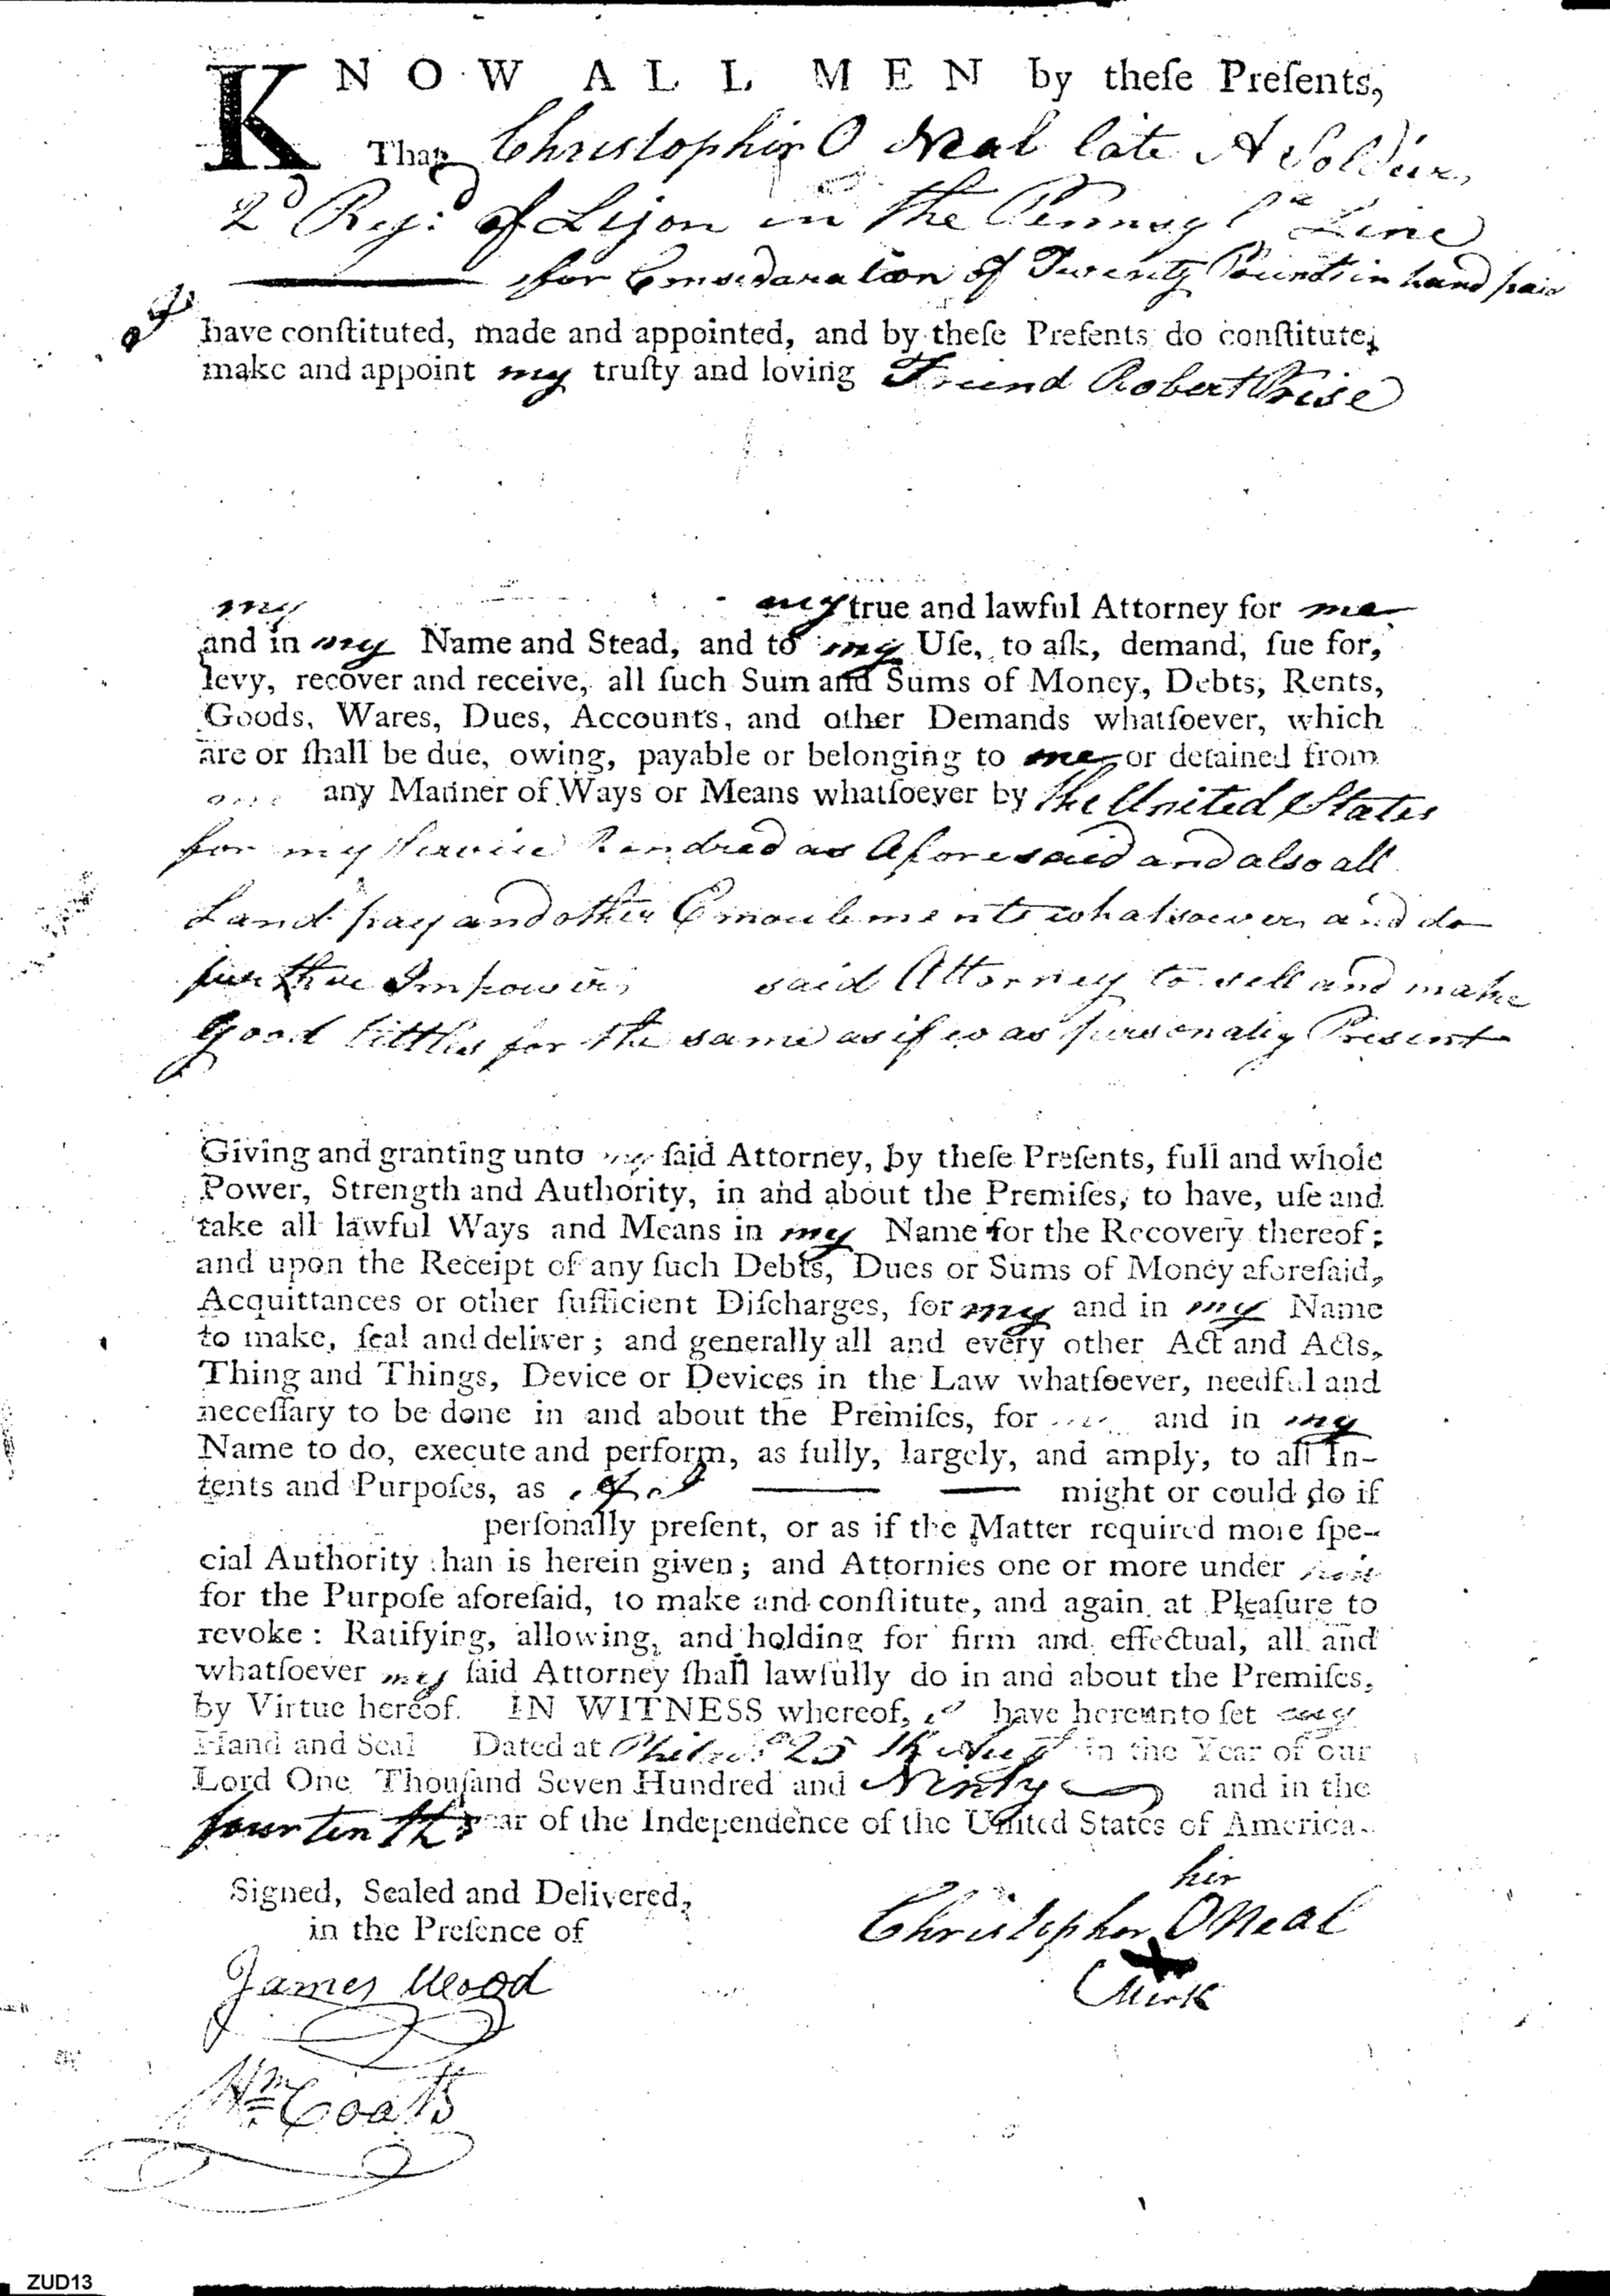 KNOW ALL MEN by theſe Preſents,
That Christopher O Neal late A Soldier,
2d Regt of Lijon in the Pennsyla Line
for Consedaration of Twenty Pounds in hand paid
have conſtituted, made and appointed, and by theſe Preſents do conſtitute,
make and appoint my truſty and loving Friend Robert Prise
my my true and lawful Attorney for me
and in my Name and Stead, and to my Uſe, to aſk, demand, ſue for,
levy, recover and receive, all ſuch Sum and Sums of Money, Debts, Rents,
Goods, Wares, Dues, Accounts, and other Demands whatſoever, which
are or ſhall be due, owing, payable or belonging to me or detained from
any Manner of Ways or Means whatſoever by the United States
for my Service Rendred as Aforesaid and also all
Land pay and other Emoulements whatsoever and do
further Impower said Attorney to sell and make
good tittles for the same as if was personaly Present
Giving and granting unto my ſaid Attorney, by theſe Preſents, full and whole
Power, Strength and Authority, in and about the Premiſes, to have, uſe and
take all lawful Ways and Means in my Name for the Recovery thereof;
and upon the Receipt of any ſuch Debts, Dues or Sums of Money aforeſaid,
Acquittances or other ſufficient Diſcharges, for my and in my Name
to make, ſeal and deliver; and generally all and every other Act and Acts,
Thing and Things, Device or Devices in the Law whatſoever, needful and
neceſſary to be done in and about the Premiſes, for and in my
Name to do, execute and perform, as fully, largely, and amply, to all In-
tents and Purpoſes, as if I might or could do if
perſonally preſent, or as if the Matter required more ſpe-
cial Authority than is herein given; and Attornies one or more under
for the Purpoſe aforeſaid, to make and conſtitute, and again at Pleaſure to
revoke: Ratifying, allowing, and holding for firm and effectual, all and
whatſoever my ſaid Attorney ſhall lawfully do in and about the Premiſes,
by Virtue hereof. IN WITNESS whereof, I have hereunto ſet my
Hand and Seal Dated at Philada 25th Augt in the Year of our
Lord One Thouſand Seven Hundred and Ninty and in the
fourtenth Year of the Independence of the United States of America.
Signed, Sealed and Delivered,
in the Preſence of
his
Christopher ONeal
X
Mark
James Wood
Wm Coats
ZUD13